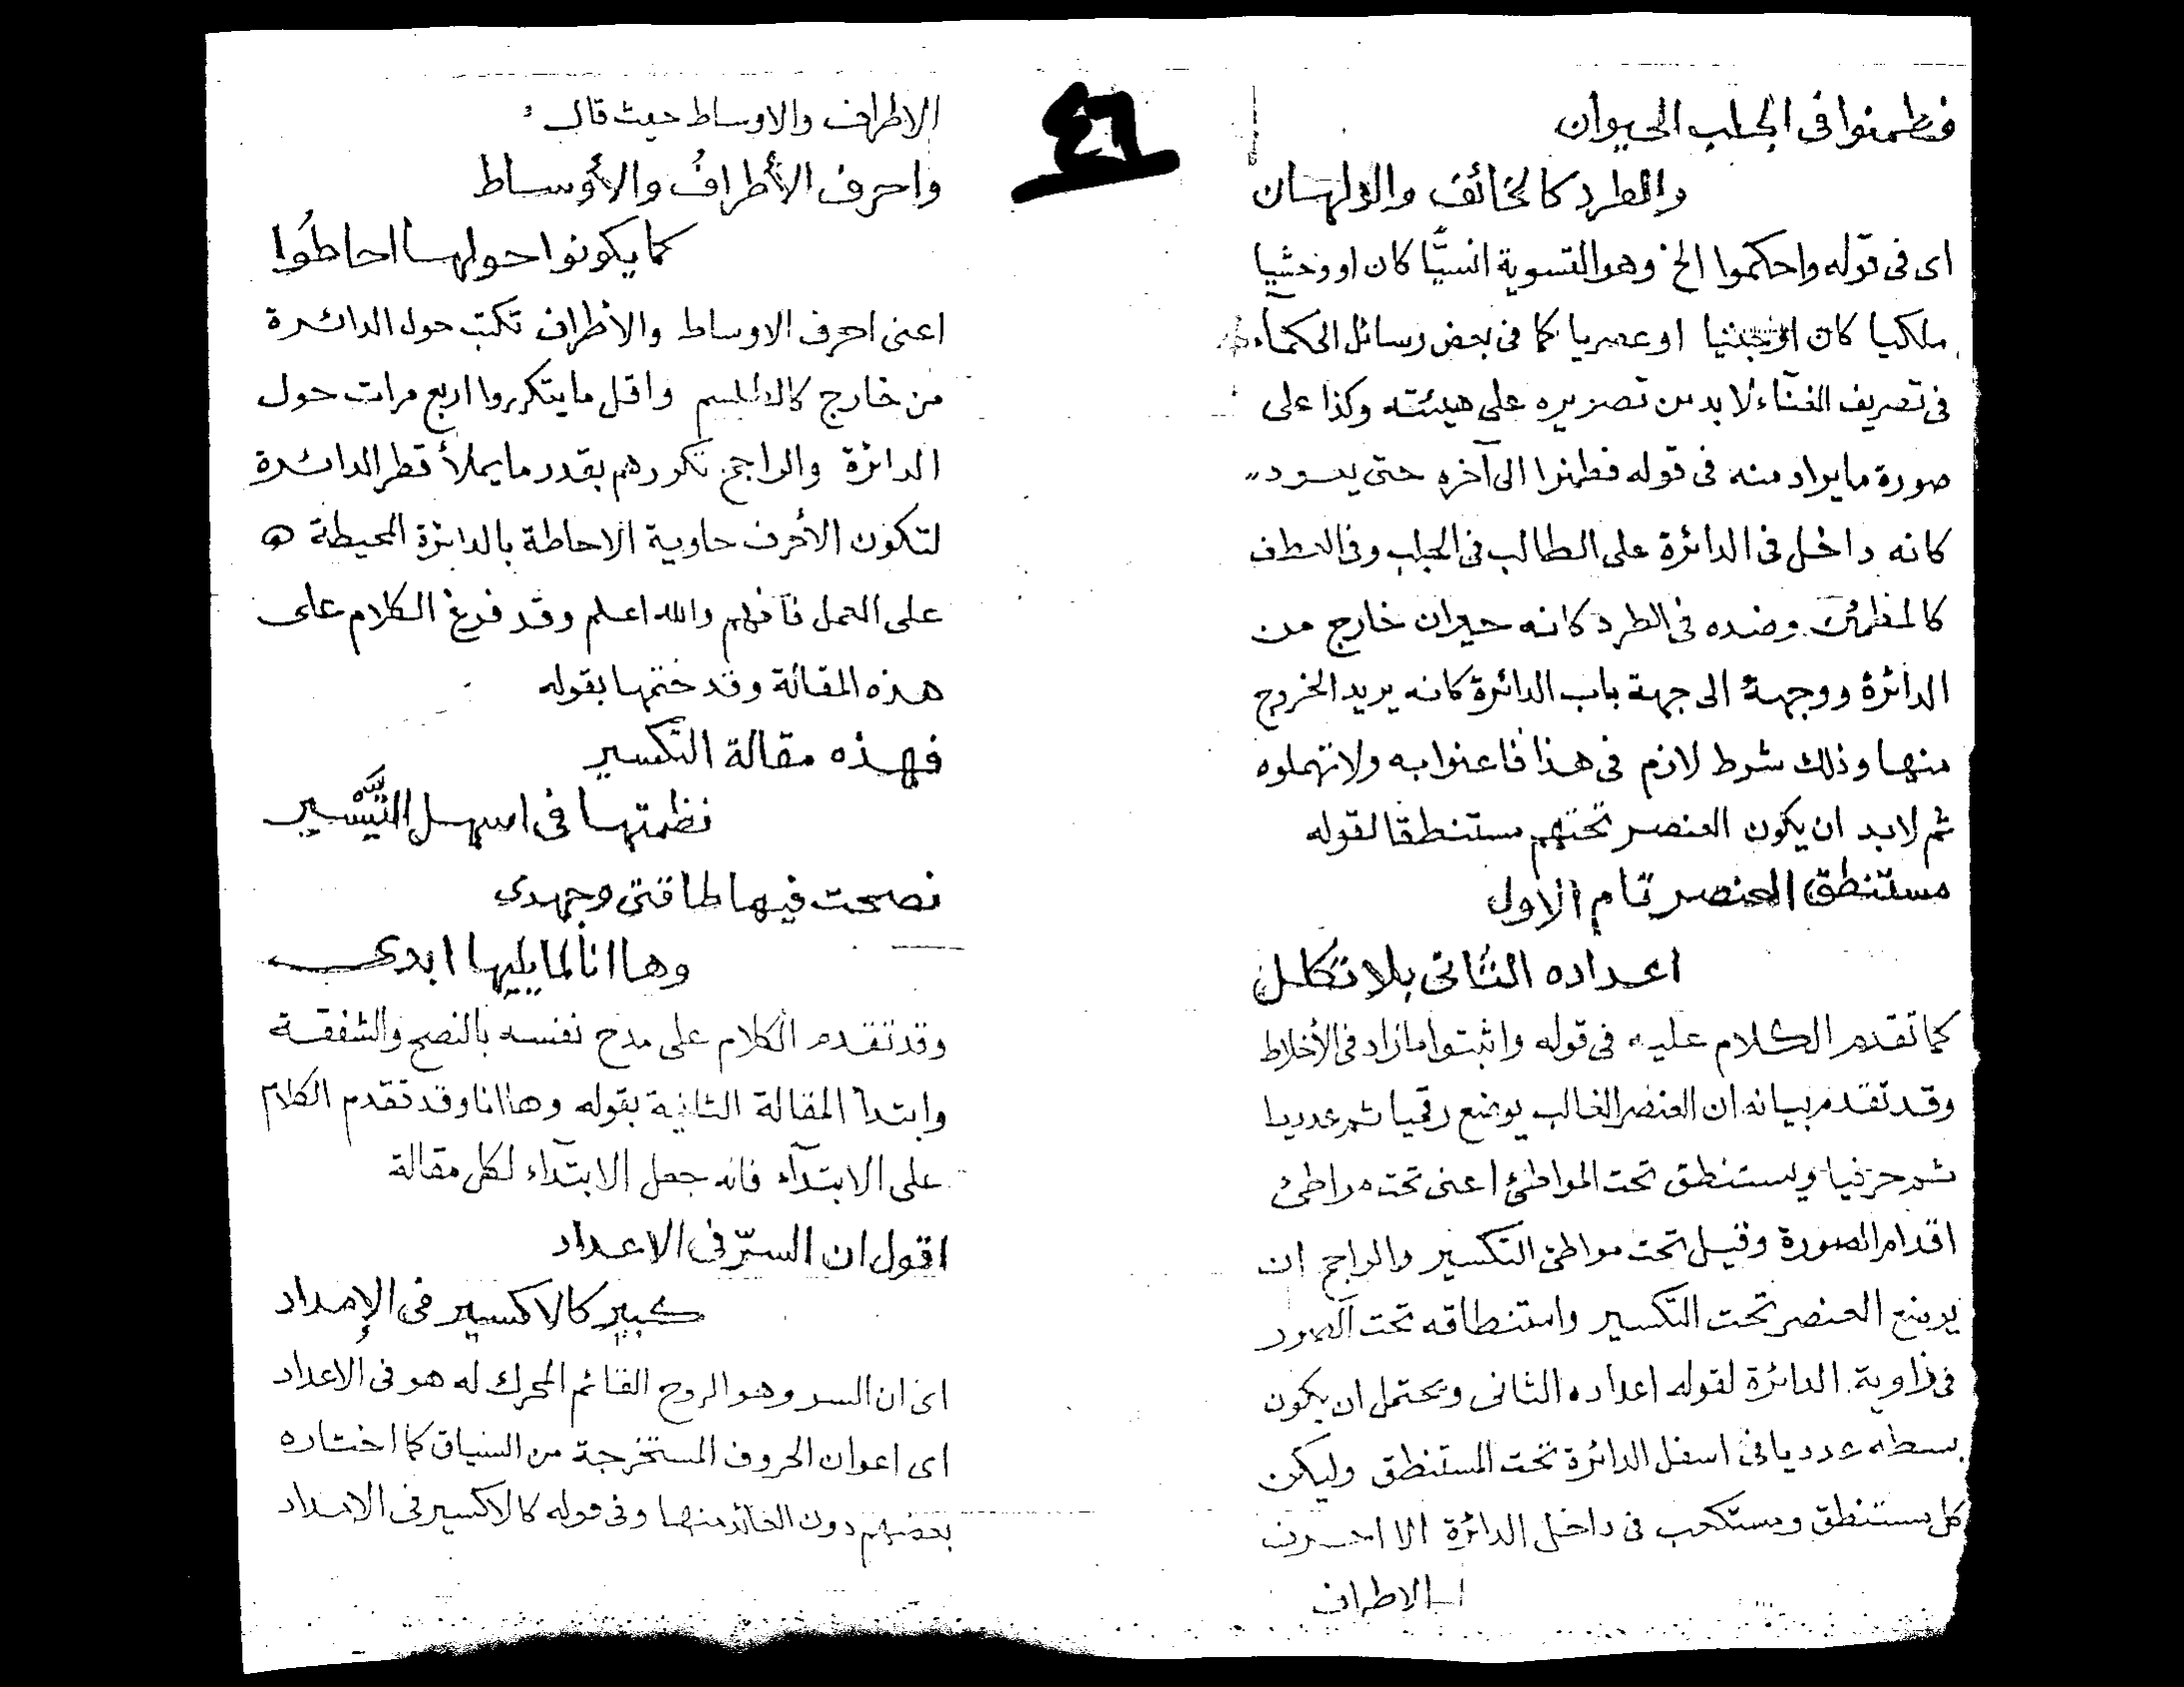 فطمنوا فى الجلب الحيوان
والطرد كالخائف والولهان
اى فى قوله واحكموا الخ وهو التسوية انسيًّا كان او وحشيا
ملكيا كان او عصريا كما فى بعض رسائل الحكماء
فى تصريف الفنآء لا بد من تصويره على هيئته وكذا على
صورة ما يراد منه فى قوله فطمنوا الى آخره حتى يعود
كانه داخل فى الدائرة على الطالب فى الجلب وفى العطف
كالمطمئن وضده فى الطرد كانه حيران خارج من
الدائرة ووجهه الى جهة باب الدائرة كانه يريد الخروج
منها وذلك شرط لازم فى هذا فاعنوا به ولا تهملوه
ثم لابد ان يكون العنصر تحتهم مستنطقا لقوله
مستنطق العنصر تام الاول
اعداده الثانى بلا تكلل
كما تقدم الكلام عليه فى قوله واثبتوا مازاد فى الأخلاط
وقد تقدم بيانه ان العنصر الغالب يوضع رقميا ثم عدديا
ثم حرفيا ويستنطق تحت المواطئ اعنى تحت مواطئ
اقدام الصورة وقيل تحت مواطئ التكسير والراجح ان
يوضع العنصر تحت التكسير واستنطاقه تحت الصور
فى زاوية الدائرة لقوله اعداده الثانى ويحتمل ان يكون
بسطه عدديا فى اسفل الدائرة تحت المستنطق وليكن
كل مستنطق ومستكعب فى داخل الدائرة الا احرف
الاطراف
٤٦
الاطراف والاوساط حيث قال
واحرف الأطرافُ والأوساط
كما يكونوا حولها احاطُوا
اعنى احرف الاوساط والأطراف تكتب حول الدائرة
من خارج كالطلسم واقل ما يتكرروا اربع مرات حول
الدائرة والراجح تكررهم بقدر ما يملأ قطر الدائرة
لتكون الأحرف حاوية الاحاطة بالدائرة المحيطة
على العمل فافهم والله اعلم وقد فرغ الكلام على
هذه المقالة وقد ختمها بقوله
فهذه مقالة التكسير
نظمتها فى اسهل التَّيسير
نصحت فيها طاقتى وجهدى
وها انا لما يليها ابدى
وقد تقدم الكلام على مدح نفسه بالنصح والشفقة
وابتدا المقالة الثانية بقوله وها انا وقد تقدم الكلام
على الابتدآء فانه جعل الابتدآء لكل مقالة
اقول ان السرّ فى الاعداد
كبير كالاكسير فى الإمداد
اى ان السر وهو الروح القائم المحرك له هو فى الاعداد
اى اعوان الحروف المستخرجة من السياق كما اختاره
بعضهم دون منها وفى قوله كالاكسير فى الامداد